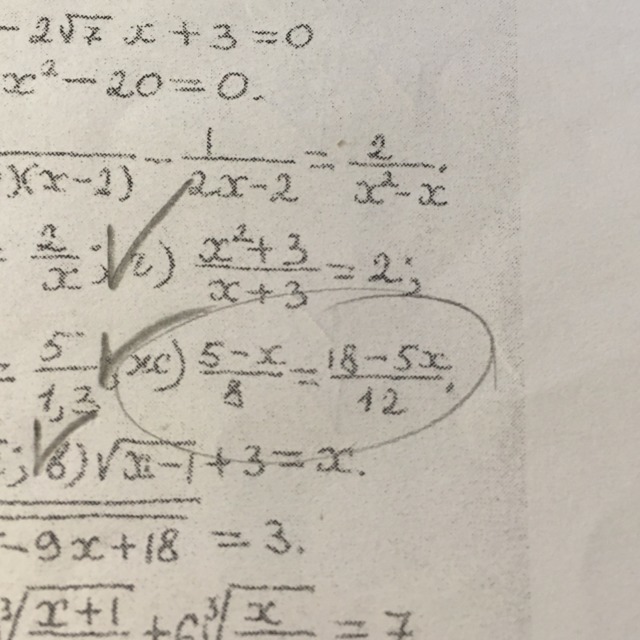 - 2√7 x + 3 = 0
x² - 20 = 0.
)(x-2) - 1/(2x-2) = 2/(x²-x).
= 2/x; г) (x²+3)/(x+3) = 2;
= 5/1,3; ж) (5-x)/8 = (18-5x)/12.
; в) √(x-1) + 3 = x.
-9x+18 = 3.
³√(x+1) + 6 ³√x = 7